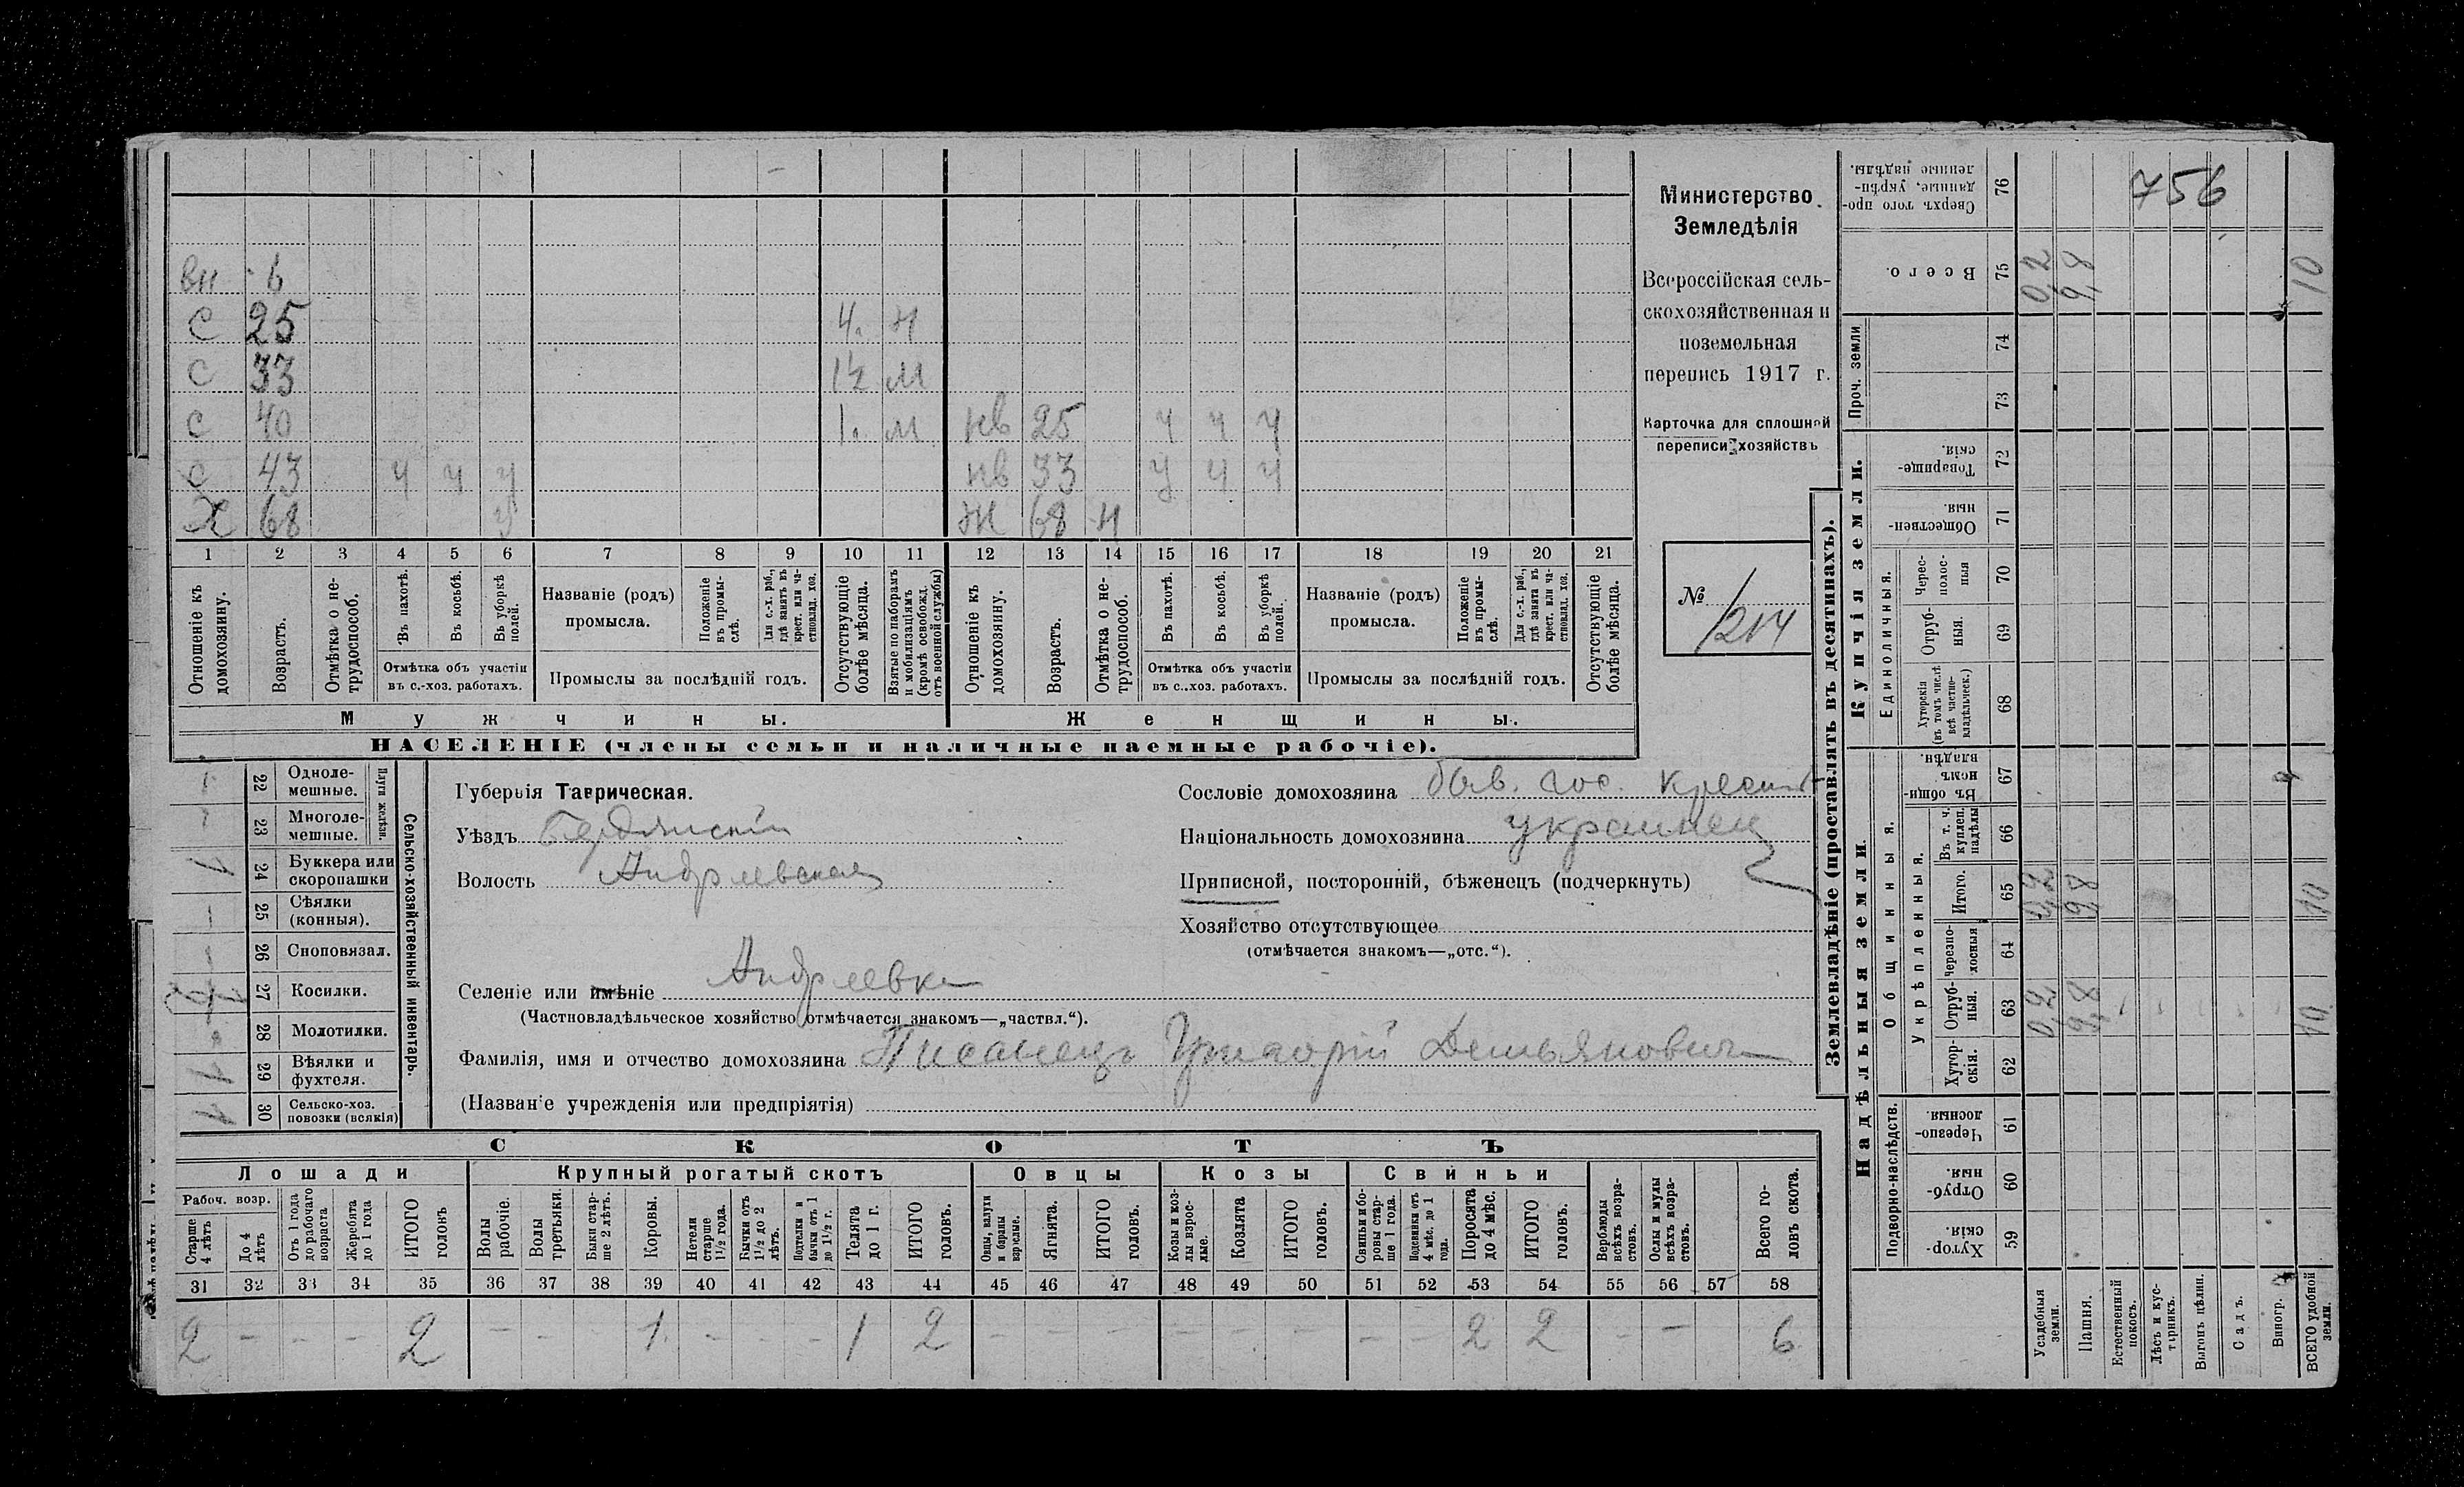 вн 6
с 25 4. м
с 33 1½ м
с 40 1. м нв 25 у у у
с 43 у у у нв 33 у у у
х 68 у ж 68 н
1 2 3 4 5 6 7 8 9 10 11 12 13 14 15 16 17 18 19 20 21
Отношеніе къ домохозяину.
Возрастъ.
Отмѣтка о не-трудоспособ.
Въ пахотѣ.
Въ косьбѣ.
Въ уборкѣ полей.
Отмѣтка объ участіи
въ с.-хоз. работахъ.
Названіе (родъ)
промысла.
Положеніе въ промы-слѣ.
Для с.-х. раб., гдѣ занятъ въ крест. или ча-стновлад. хоз.
Промыслы за послѣдній годъ.
Отсутствующіе болѣе мѣсяца.
Взятые по наборамъ и мобилизаціямъ (кромѣ освобожд. отъ военной службы)
Отношеніе къ домохозяину.
Возрастъ.
Отмѣтка о не-трудоспособ.
Въ пахотѣ.
Въ косьбѣ.
Въ уборкѣ полей.
Отмѣтка объ участіи
въ с.-хоз. работахъ.
Названіе (родъ)
промысла.
Положеніе въ промы-слѣ.
Для с.-х. раб., гдѣ занята въ крест. или ча-стновлад. хоз.
Промыслы за послѣдній годъ.
Отсутствующіе болѣе мѣсяца.
Мужчины. Женщины.
НАСЕЛЕНІЕ (члены семьи и наличные наемные рабочіе).
Министерство
Земледѣлія
Всероссійская сель-
скохозяйственная и
поземельная
перепись 1917 г.
Карточка для сплошной
переписи хозяйствъ
№ 1214
Сельско-хозяйственный инвентарь.
Плуги желѣзн.
22 Одноле-мешные.
23 Многоле-мешные.
1 24 Буккера или скоропашки
25 Сѣялки (конныя).
26 Сноповязал.
27 Косилки.
28 Молотилки.
1 29 Вѣялки и фухтеля.
1 30 Сельско-хоз. повозки (всякія)
Губернія Таврическая.
Уѣздъ Бердянскій
Волость Андреевская
Селеніе или имѣніе Андреевка
(Частновладѣльческое хозяйство отмѣчается знакомъ—„частвл.“).
Фамилія, имя и отчество домохозяина Писанецъ Григорій Демьяновичъ
(Названіе учрежденія или предпріятія)
Сословіе домохозяина быв. гос. крест
Національность домохозяина украинец
Приписной, посторонній, бѣженецъ (подчеркнуть)
Хозяйство отсутствующее
(отмѣчается знакомъ—„отс.“).
СКОТЪ
Лошади Крупный рогатый скотъ Овцы Козы Свиньи
Рабоч. возр.
Старше 4 лѣтъ
До 4 лѣтъ
Отъ 1 года до рабочаго возраста
Жеребята до 1 года
ИТОГО головъ
Волы рабочіе.
Волы третьяки.
Быки стар-ше 2 лѣтъ.
Коровы.
Нетели старше 1½ года.
Бычки отъ 1½ до 2 лѣтъ.
Подтелки и бычки отъ 1 до 1½ г.
Телята до 1 г.
ИТОГО головъ.
Овцы, валухи и бараны взрослые.
Ягнята.
ИТОГО головъ.
Козы и коз-лы взрос-лые.
Козлята
ИТОГО головъ.
Свиньи и бо-ровы стар-ше 1 года.
Подсвинки отъ 4 мѣс. до 1 года.
Поросята до 4 мѣс.
ИТОГО головъ.
Верблюды всѣхъ возра-стовъ.
Ослы и мулы всѣхъ возра-стовъ.
Всего го-ловъ скота.
31 32 33 34 35 36 37 38 39 40 41 42 43 44 45 46 47 48 49 50 51 52 53 54 55 56 57 58
2 - - - 2 - - - 1 - - - 1 2 - - - - - - - - 2 2 - - 6
Землевладѣніе (проставлять въ десятинахъ).
Купчія земли.
Надѣльныя земли.
Проч. земли
Единоличныя.
Общинныя.
Укрѣпленныя.
Подворно-наслѣдств.
Сверхъ того про-данные, укрѣп-ленные надѣлы. 76
756
Всего. 75 0,2 9,8 10
74
73
Товарище-скія. 72
Обществен-ныя. 71
Черес-полос-ныя 70
Отруб-ныя. 69
Хуторскія (въ томъ числѣ всѣ частно-владѣльческ.) 68
Въ общин-номъ владѣн. 67
Въ т. ч. куплен. надѣлы 66
Итого. 65 0,2 9,8 10
Черезпо-лосныя 64
Отруб-ныя. 63 0,2 9,8 10
Хутор-скія. 62
Черезпо-лосныя. 61
Отруб-ныя. 60
Хутор-скія. 59
Усадебныя земли.
Пашня.
Естественный покосъ.
Лѣсъ и кус-тарникъ.
Выгонъ цѣлин.
Садъ.
Виногр.
ВСЕГО удобной земли.